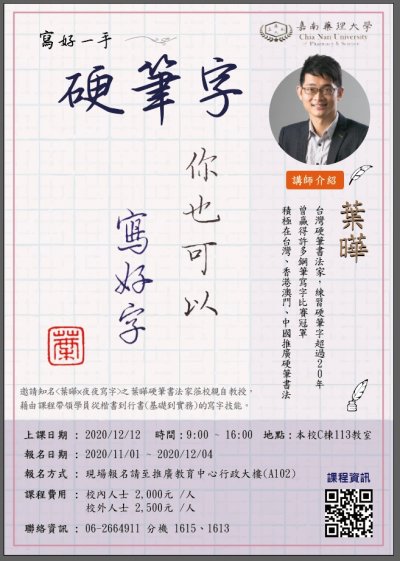 寫好一手
硬筆字
嘉南藥理大學
Chia Nan University
of Pharmacy & Science
講師介紹
葉曄
台灣硬筆書法家,練習硬筆字超過20年
曾贏得許多鋼筆寫字比賽冠軍
積極在台灣、香港澳門、中國推廣硬筆書法
你也可以
寫好字
葉
邀請知名<葉曄x夜夜寫字>之葉曄硬筆書法家蒞校親自教授,
藉由課程帶領學員從楷書到行書(基礎到實務)的寫字技能。
上課日期 : 2020/12/12 時間:9:00 ~ 16:00 地點:本校C棟113教室
報名日期 : 2020/11/01 ~ 2020/12/04
報名方式 : 現場報名請至推廣教育中心行政大樓(A102)
課程費用 : 校內人士 2,000元 /人
校外人士 2,500元 /人
聯絡資訊 : 06-2664911 分機 1615、1613
課程資訊